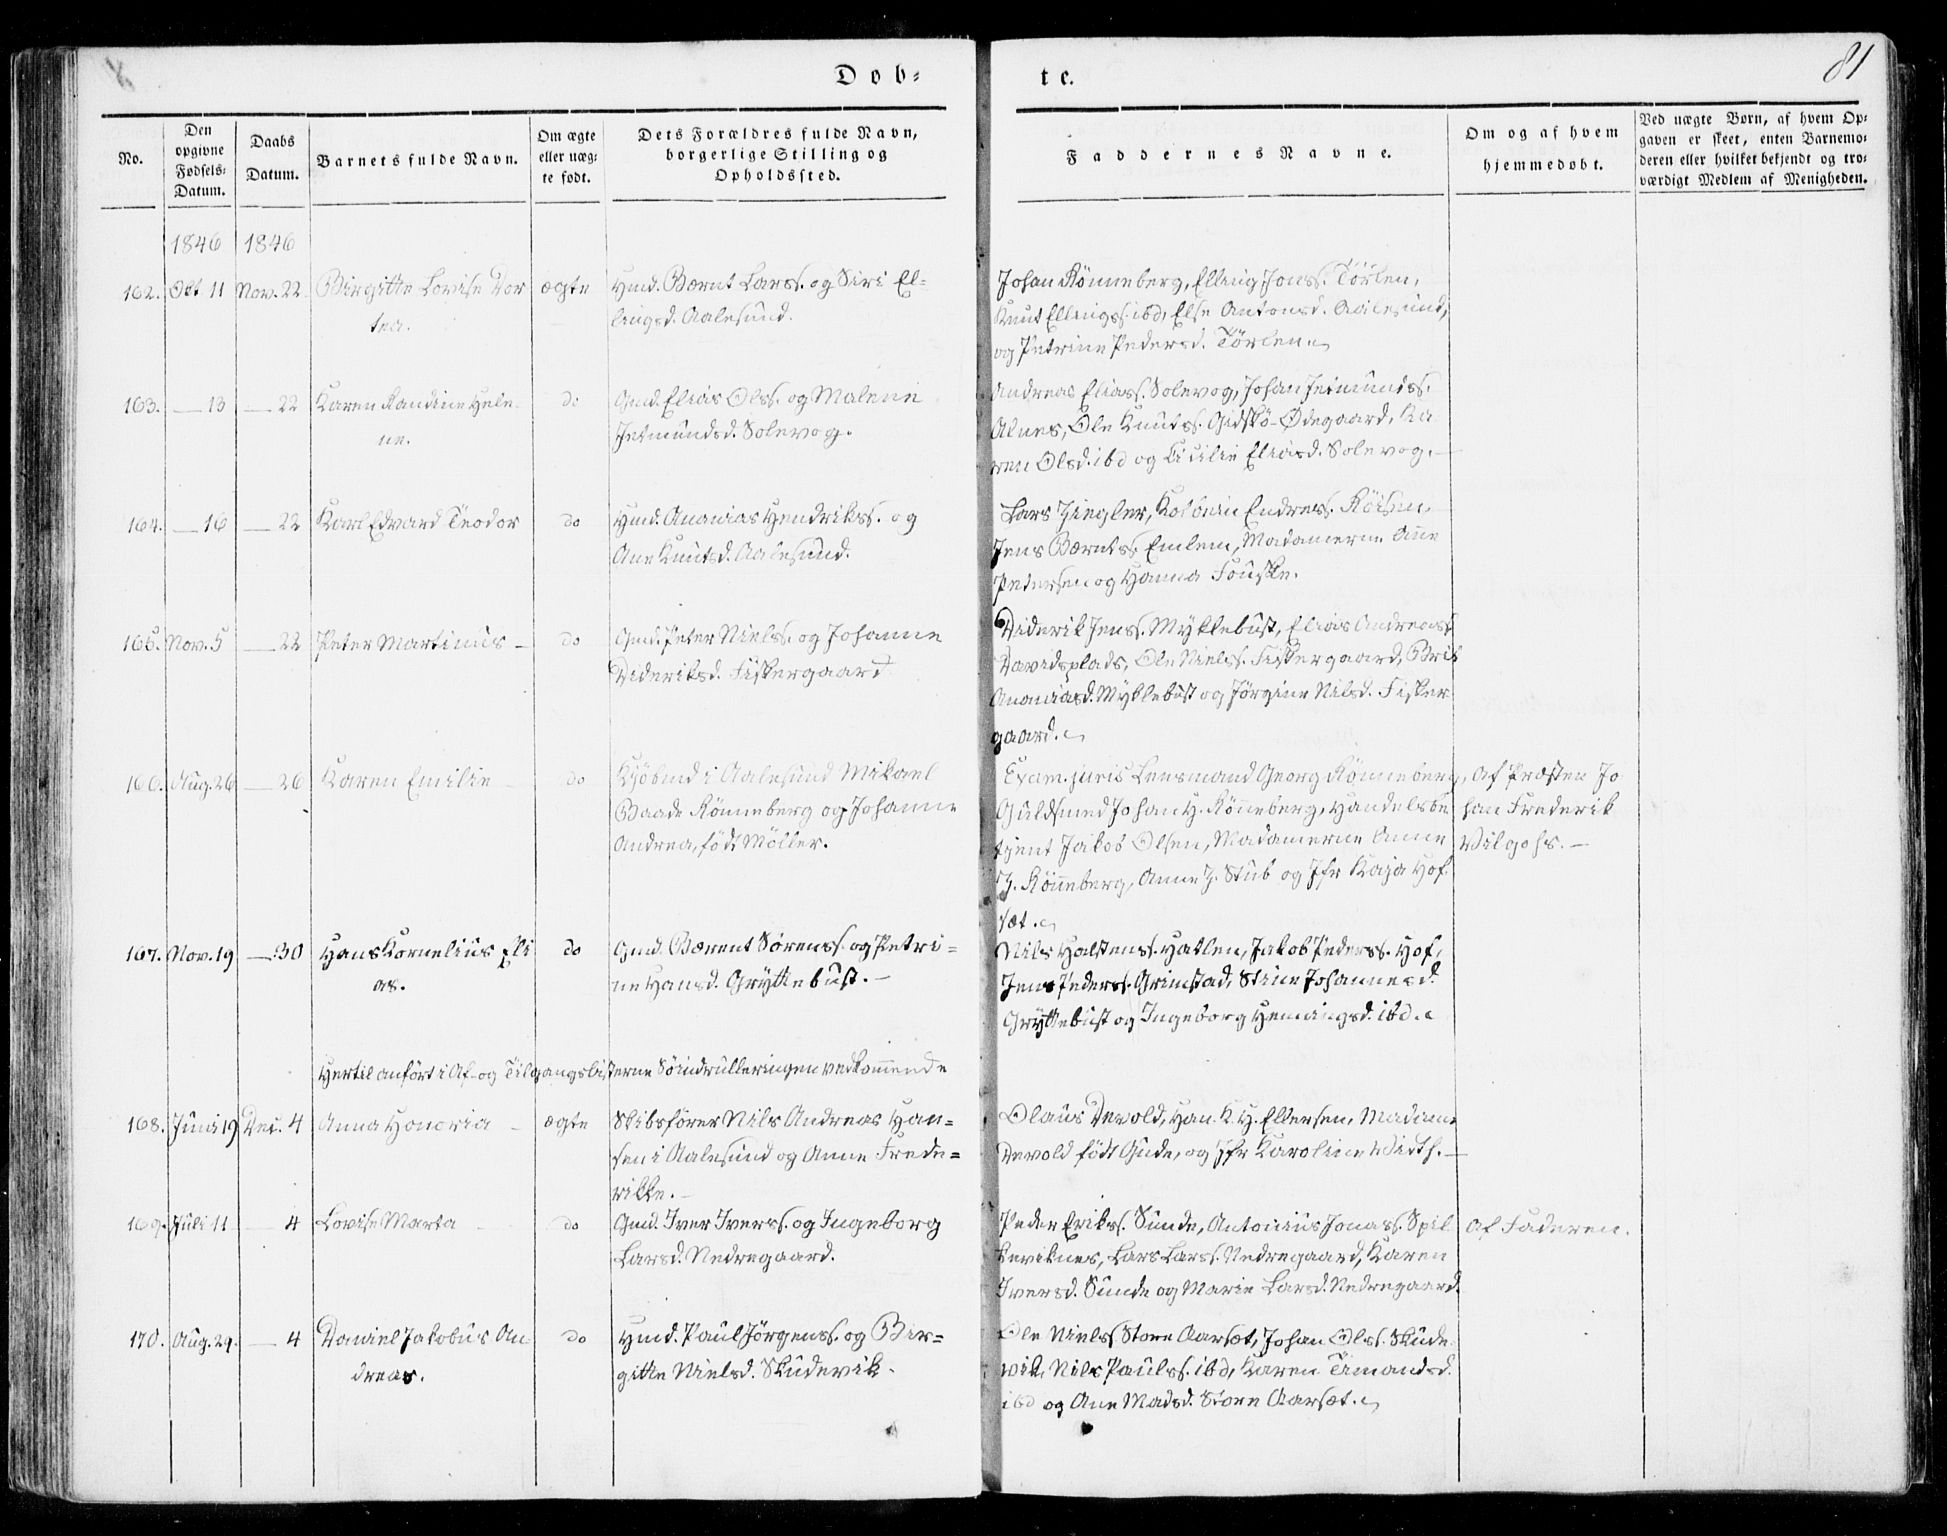 81
Døb-
te.
No.
Den
opgivne
Fødsels-
Datum.
Daabs
Datum.
Barnets fulde Navn.
Om ægte
eller uæg-
te født.
Dets Forældres fulde Navn,
borgerlige Stilling og
Opholdssted.
Faddernes Navne.
Om og af hvem
hjemmedøbt.
Ved uægte Børn, af hvem Op-
gaven er skeet, enten Barnemo-
deren eller hvilket bekjendt og tro-
værdigt Medlem af Menigheden.
1846 1846
162. Okt 11 Nov. 22 Birgitte Lovise Dor
tea.
ægte
Hmd. Bernt Larss. og Siri El-
lingsd. Aalesund.
Johan Rönneberg, Elling Jonss. Törlen,
Knut Ellingss. ibd, Else Antonsd. Aalesund,
og Petrine Pedersd. Törlen.
163. — 13 — 22 Karen Randine Hele
ne.
do
Gmd. Elias Olss. og Malene
Jetmundsd. Solevog.
Andreas Eliass. Solevog, Johan Jetmundss.
Alnes, Ole Knudss. Gidskö-Ødegaard, Ka
ren Olsd. ibd og Cicilie Eliasd. Solevog.
164. — 16 — 22 Karl Edvard Teodor
do
Hmd. Ananias Hendrikss. og
Ane Knutsd. Aalesund.
Lars Ziegler, Kolbein Endress. Röisen,
Jens Bærntss. Emlem, Madamerne Ane
Petersen og Hanna Fouske.
165. Nov. 5 — 22 Peter Martinus
do
Gmd. Peter Nielss. og Johanne
Dideriksd. Fiskergaard
Diderik Jenss. Myklebust, Elias Andreass
Davidsplads, Ole Nielss. Fiskergaard, Brit
Ananiasd. Myklebust og Jörgine Nilsd. Fisker
gaard.
166. Aug. 26 — 26 Karen Emilie
do
Kjöbmd i Aalesund Mikael
Baade Rönneberg og Johanne
Andrea, födt Möller.
Exam. juris Lensmand Georg Rönneberg,
Guldsmed Johan H. Rönneberg, Handelsbe
tjent Jakob Olsen, Madamerne Anne
J. Rönneberg, Anne J. Stub og Jfr Kaja Hof
sæt.
Af Præsten Jo
han Frederik
Vilgohs.
167. Nov. 19 — 30 Hans Kornelius Eli
as.
do
Gmd. Bærent Sörenss. og Petri-
ne Hansd. Gryttebust.
Nils Halstenss. Hatlen, Jakob Pederss. Hof,
Jens Pederss. Grimstad, Stine Johannesd.
Gryttebust og Ingeborg Hemingsd. ibd.
Hertil anfört i Af- og Tilgangslisterne Söindrulleringen vedkommende
168. Juni 19 Dec. 4 Anna Honoria
ægte
Skibsförer Nils Andreas Han-
sen i Aalesund og Anne Frede-
rikke.
Olaus Devold, Han. K. H. Ellensen, Madame
Devold födt Gude, og Jfr Karoline Wirth.
169. Juli 11 — 4 Lovise Marta
do
Gmd. Iver Iverss. og Ingeborg
Larsd. Nedregaard.
Peder Erikss. Sunde, Antonius Jonass. Spil
keviknes, Lars Larss. Nedregaard, Karen
Iversd. Sunde og Marie Larsd. Nedregaard.
Af Faderen.
170. Aug. 29. — 4 Daniel Jakobus An
dreas.
do
Hmd. Paul Jörgenss. og Bir-
gitte Nielsd. Skudevik.
Ole Nielss Store Aarsæt, Johan Olss. Skude
vik, Nils Paulss. ibd, Karen Timandsd.
ibd og Ane Madsd. Store Aarsæt.